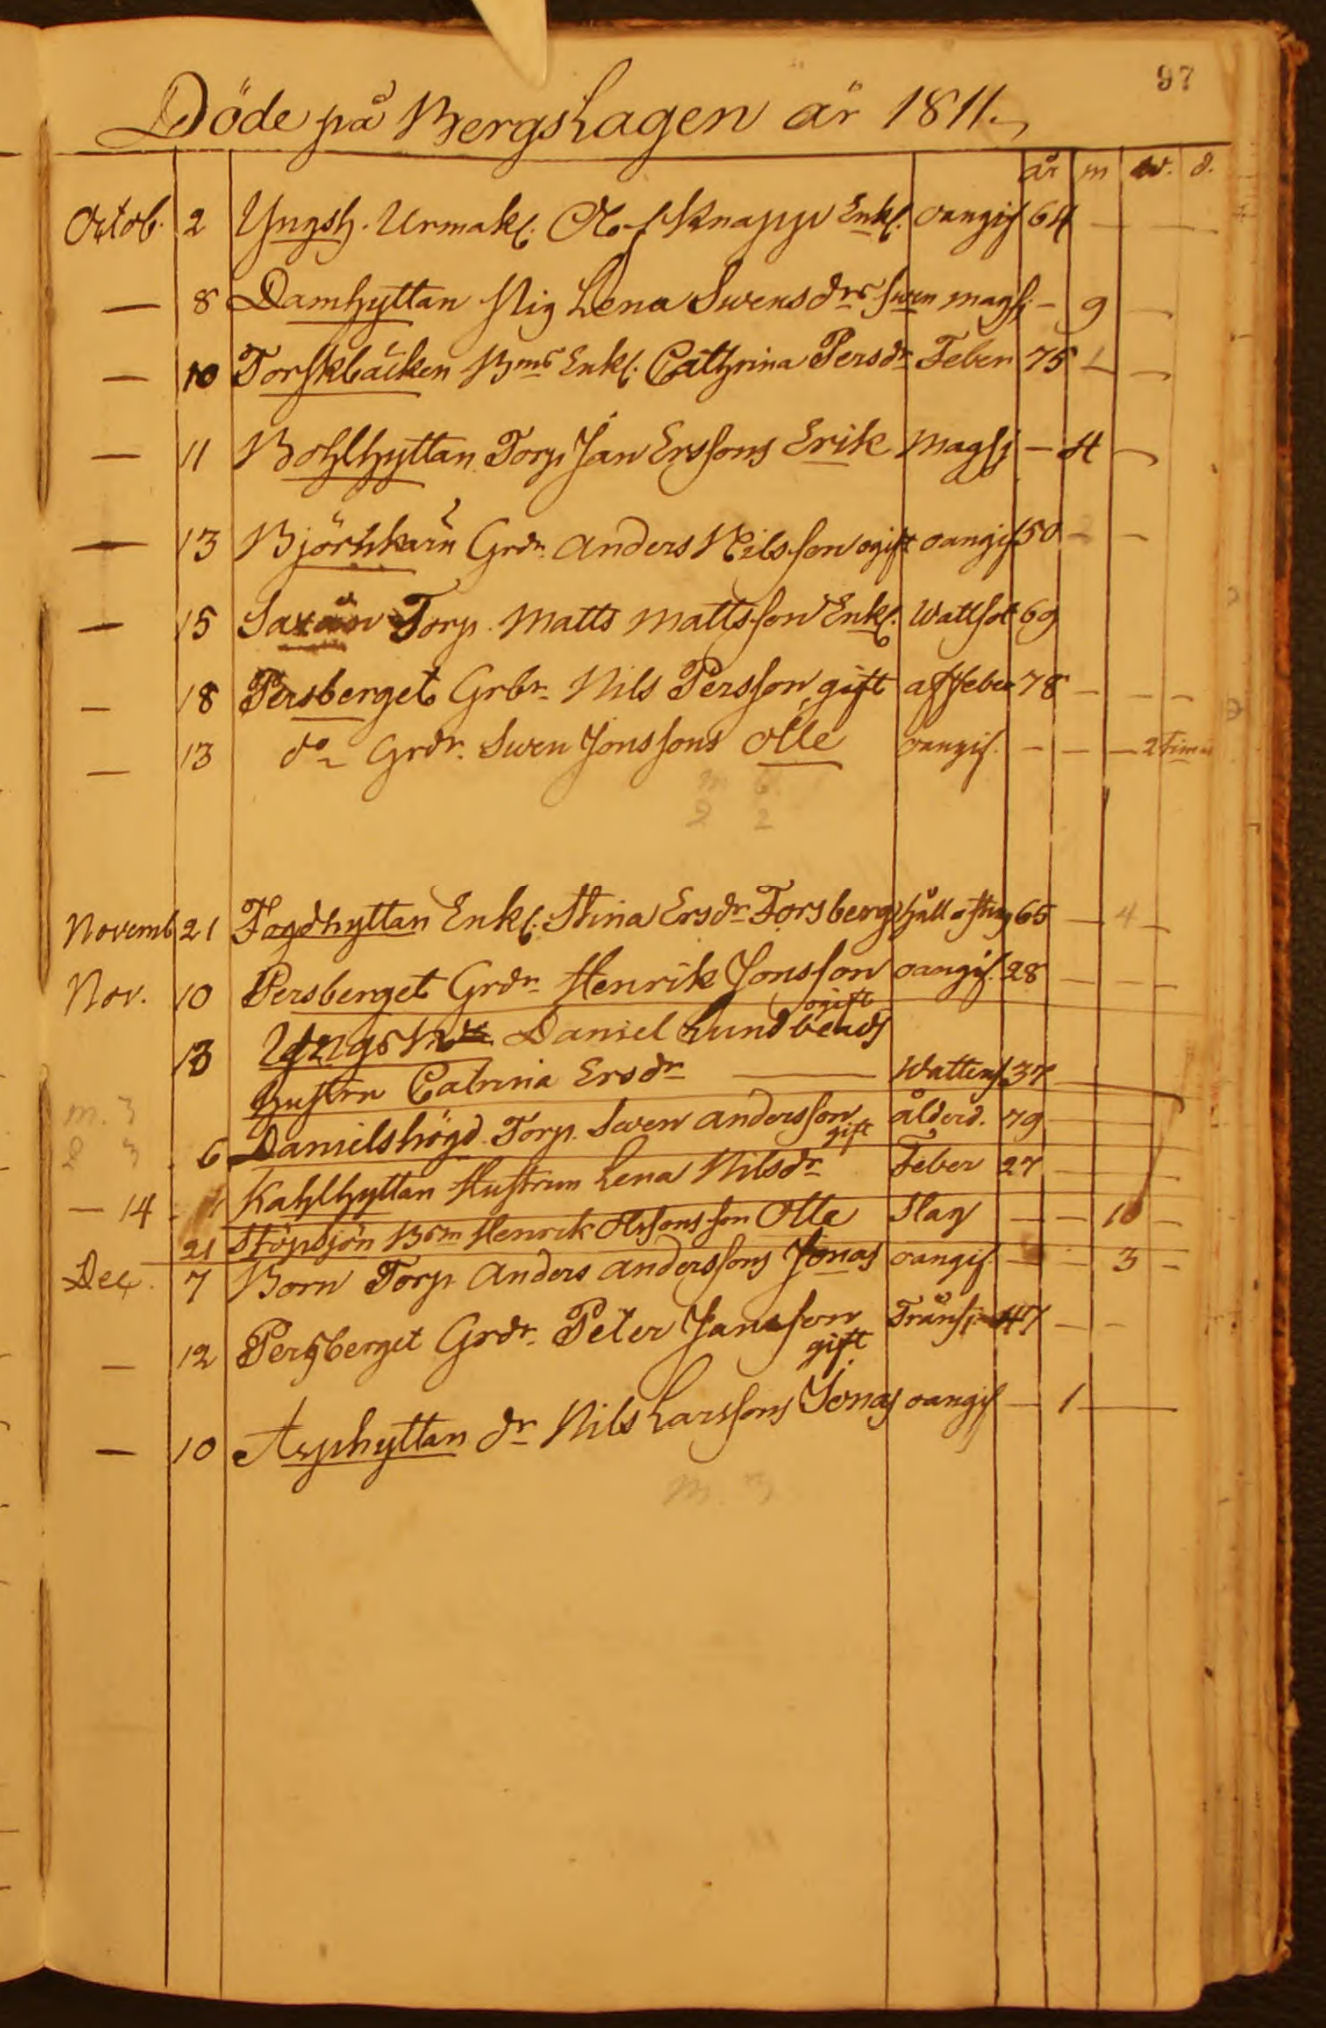 97
Döde på Bergslagen år 1811.
år m w. d.
Octob. 2 Yngsh. Urmak. Olof Knapp Enkl. oangif 64 — —
— 8 Damhyttan Pig Lena Swensdrs Swen magsj. — 9 —
— 10 Torskbäcken Bms Enk. Cathrina Persdr Feber 75 1 —
— 11 Bohlhyttan Torp. Jan Erssons Erik Magsj — 4 —
— 13 Björkkärn Grdr. Anders Nilsson ogift oangif 50 - -
— 15 Saxån Torp. Matts Mattsson Enkl. Wattsot 69
— 18 Persberget Grbr. Nils Persson gift af Feber 78 — — —
— 13 do Grdr. Swen Jonssons Olle oangif. — — — 2 Timar
m. 6.
2 2
Novemb 21 Fogdhyttan Enk. Stina Ersdr Forsberg håll o styng 65 — 4 —
Nov. 10 Persberget Grdr. Henrik Jonsson oangif. 28 — — —
ogift
13 Daniel Lundbergs
Hustru Catrina Ersdr — Wattens 37
m. 3
2 3
6 Danielshögd Torp. Swen Andersson gift ålderd. 79
— 14 Kahlhyttan Hustrun Lena Nilsdr Feber 27
21 Stöpsjön Bsm Henrik Olle Slag — — 10 —
Dec. 7 Born Torp. Anders Anderssons Jonas oangif. — - 3 -
— 12 Persberget Grdr. Peter Jansson Trånsj 47 — —
gift
— 10 Asphyttan dr. Nils Larssons Jonas oangif — 1 —
m. 3